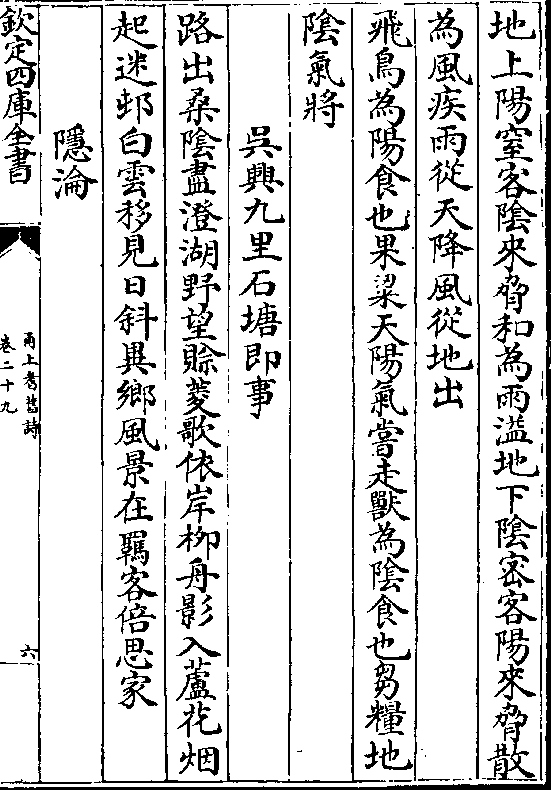 地上陽窒客陰來脅和為雨溢地下陰密客陽來脅散
為風疾雨從天降風從地出
飛鳥為陽食也果粱天陽氣嘗走獸為陰食也芻糧地
陰氣將
吳興九里石塘即事
路出桑陰盡澄湖野望賒菱歌依岸柳舟影入蘆花烟
起迷邨白雲移見日斜異鄉風景在羈客倍思家
隱淪
欽定四庫全書
甬上耆舊詩
卷二十九
六